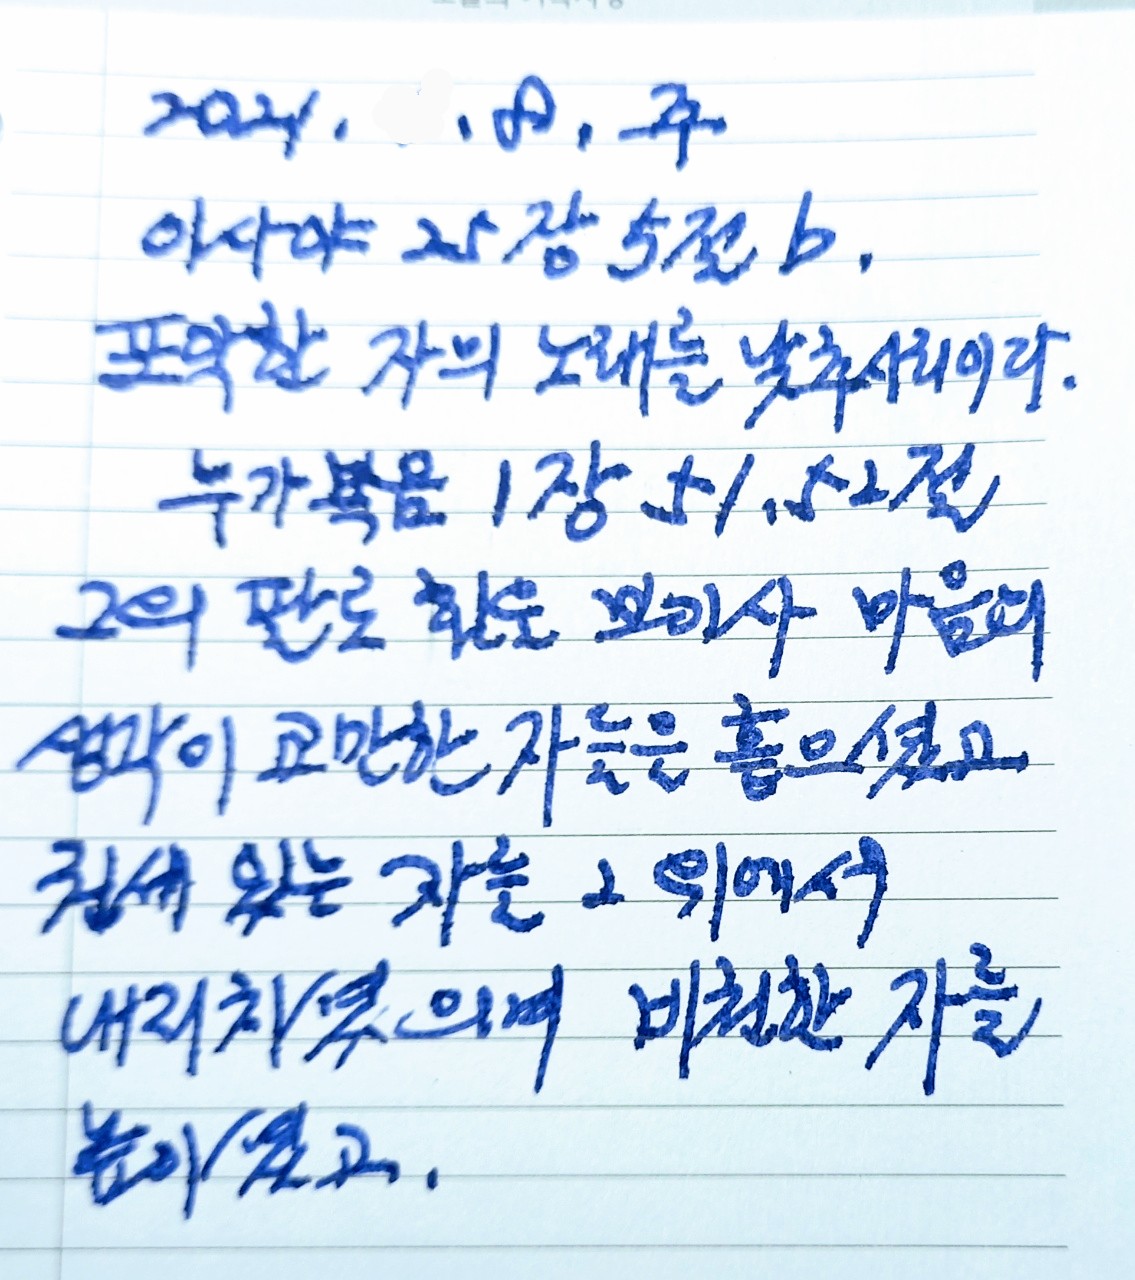 2021. .8. 주
이사야 25장 5절 b.
포악한 자의 노래를 낮추시리이다.
누가복음 1장 51.52절
그의 팔로 힘을 보이사 마음의
생각이 교만한 자들을 흩으셨고
권세 있는 자를 그 위에서
내리치셨으며 비천한 자를
높이셨고.